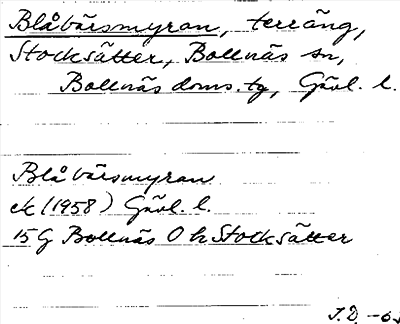 Blåbärsmyran, terräng,
Stocksätter, Bollnäs sn,
Bollnäs doms.tg, Gävl. l.
Blåbärsmyran
ek (1958) Gävl. l.
15G Bollnäs O h Stocksätter
J.D. -65